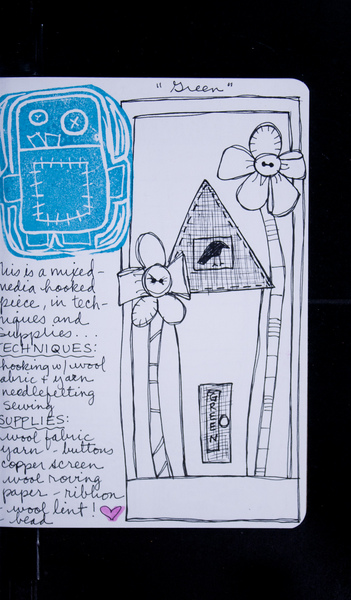 "Green"
This is a mixed-
media hooked
piece, in tech-
niques and
supplies...
TECHNIQUES:
hooking w/ wool
fabric + yarn
needlefelting
sewing
SUPPLIES:
wool fabric
yarn - buttons
copper screen
wool roving
paper - ribbon
- wool lint!
- bead
GREEN